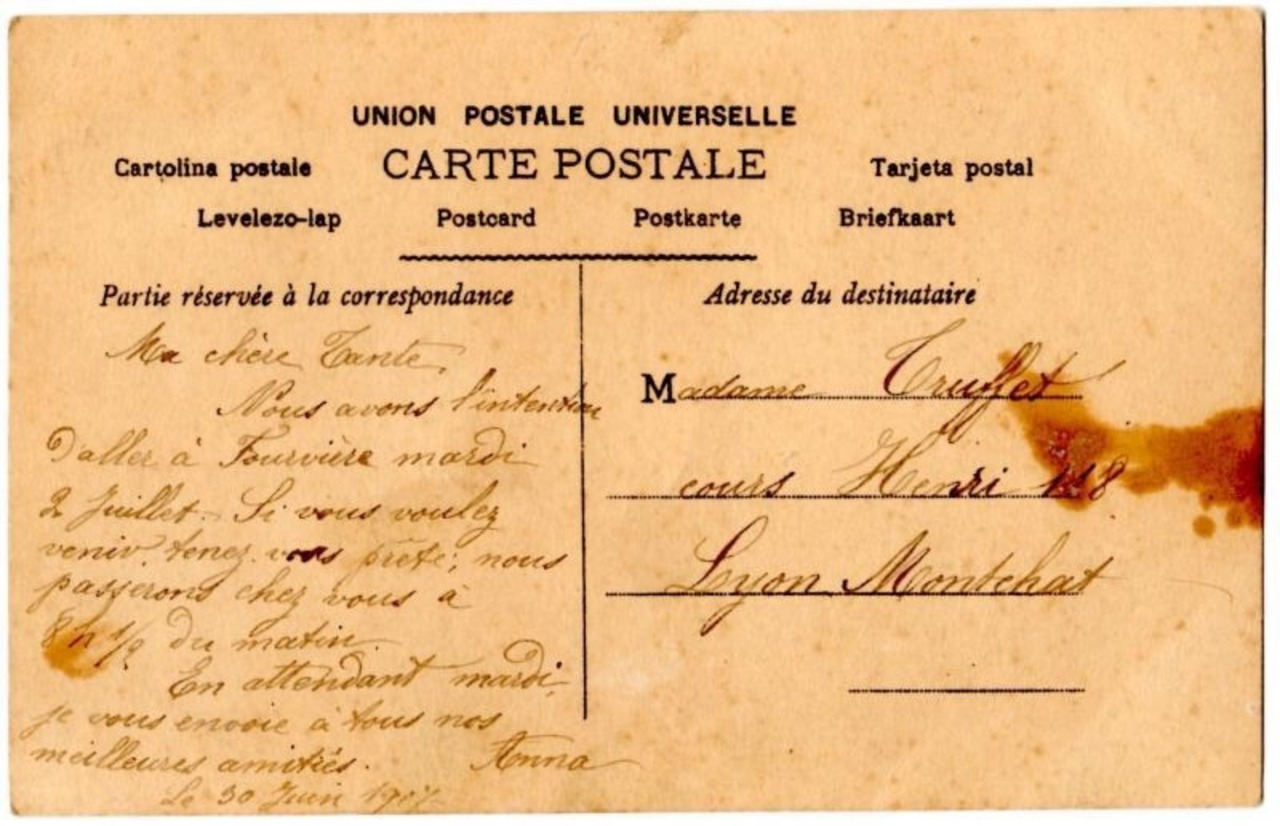 UNION POSTALE UNIVERSELLE
Cartolina postale CARTE POSTALE Tarjeta postal
Levelezo-lap Postcard Postkarte Briefkaart
Partie réservée à la correspondance
Ma chère Tante,
Nous avons l'intention
D'aller à Fourvière mardi
2 Juillet. Si vous voulez
venir, tenez vous prête; nous
passerons chez vous à
8 h 1/2 du matin.
En attendant mardi,
je vous envoie à tous nos
meilleures amitiés. Anna
Le 30 Juin 1907
Adresse du destinataire
Madame Truffet
cours Henri 118
Lyon Montchat